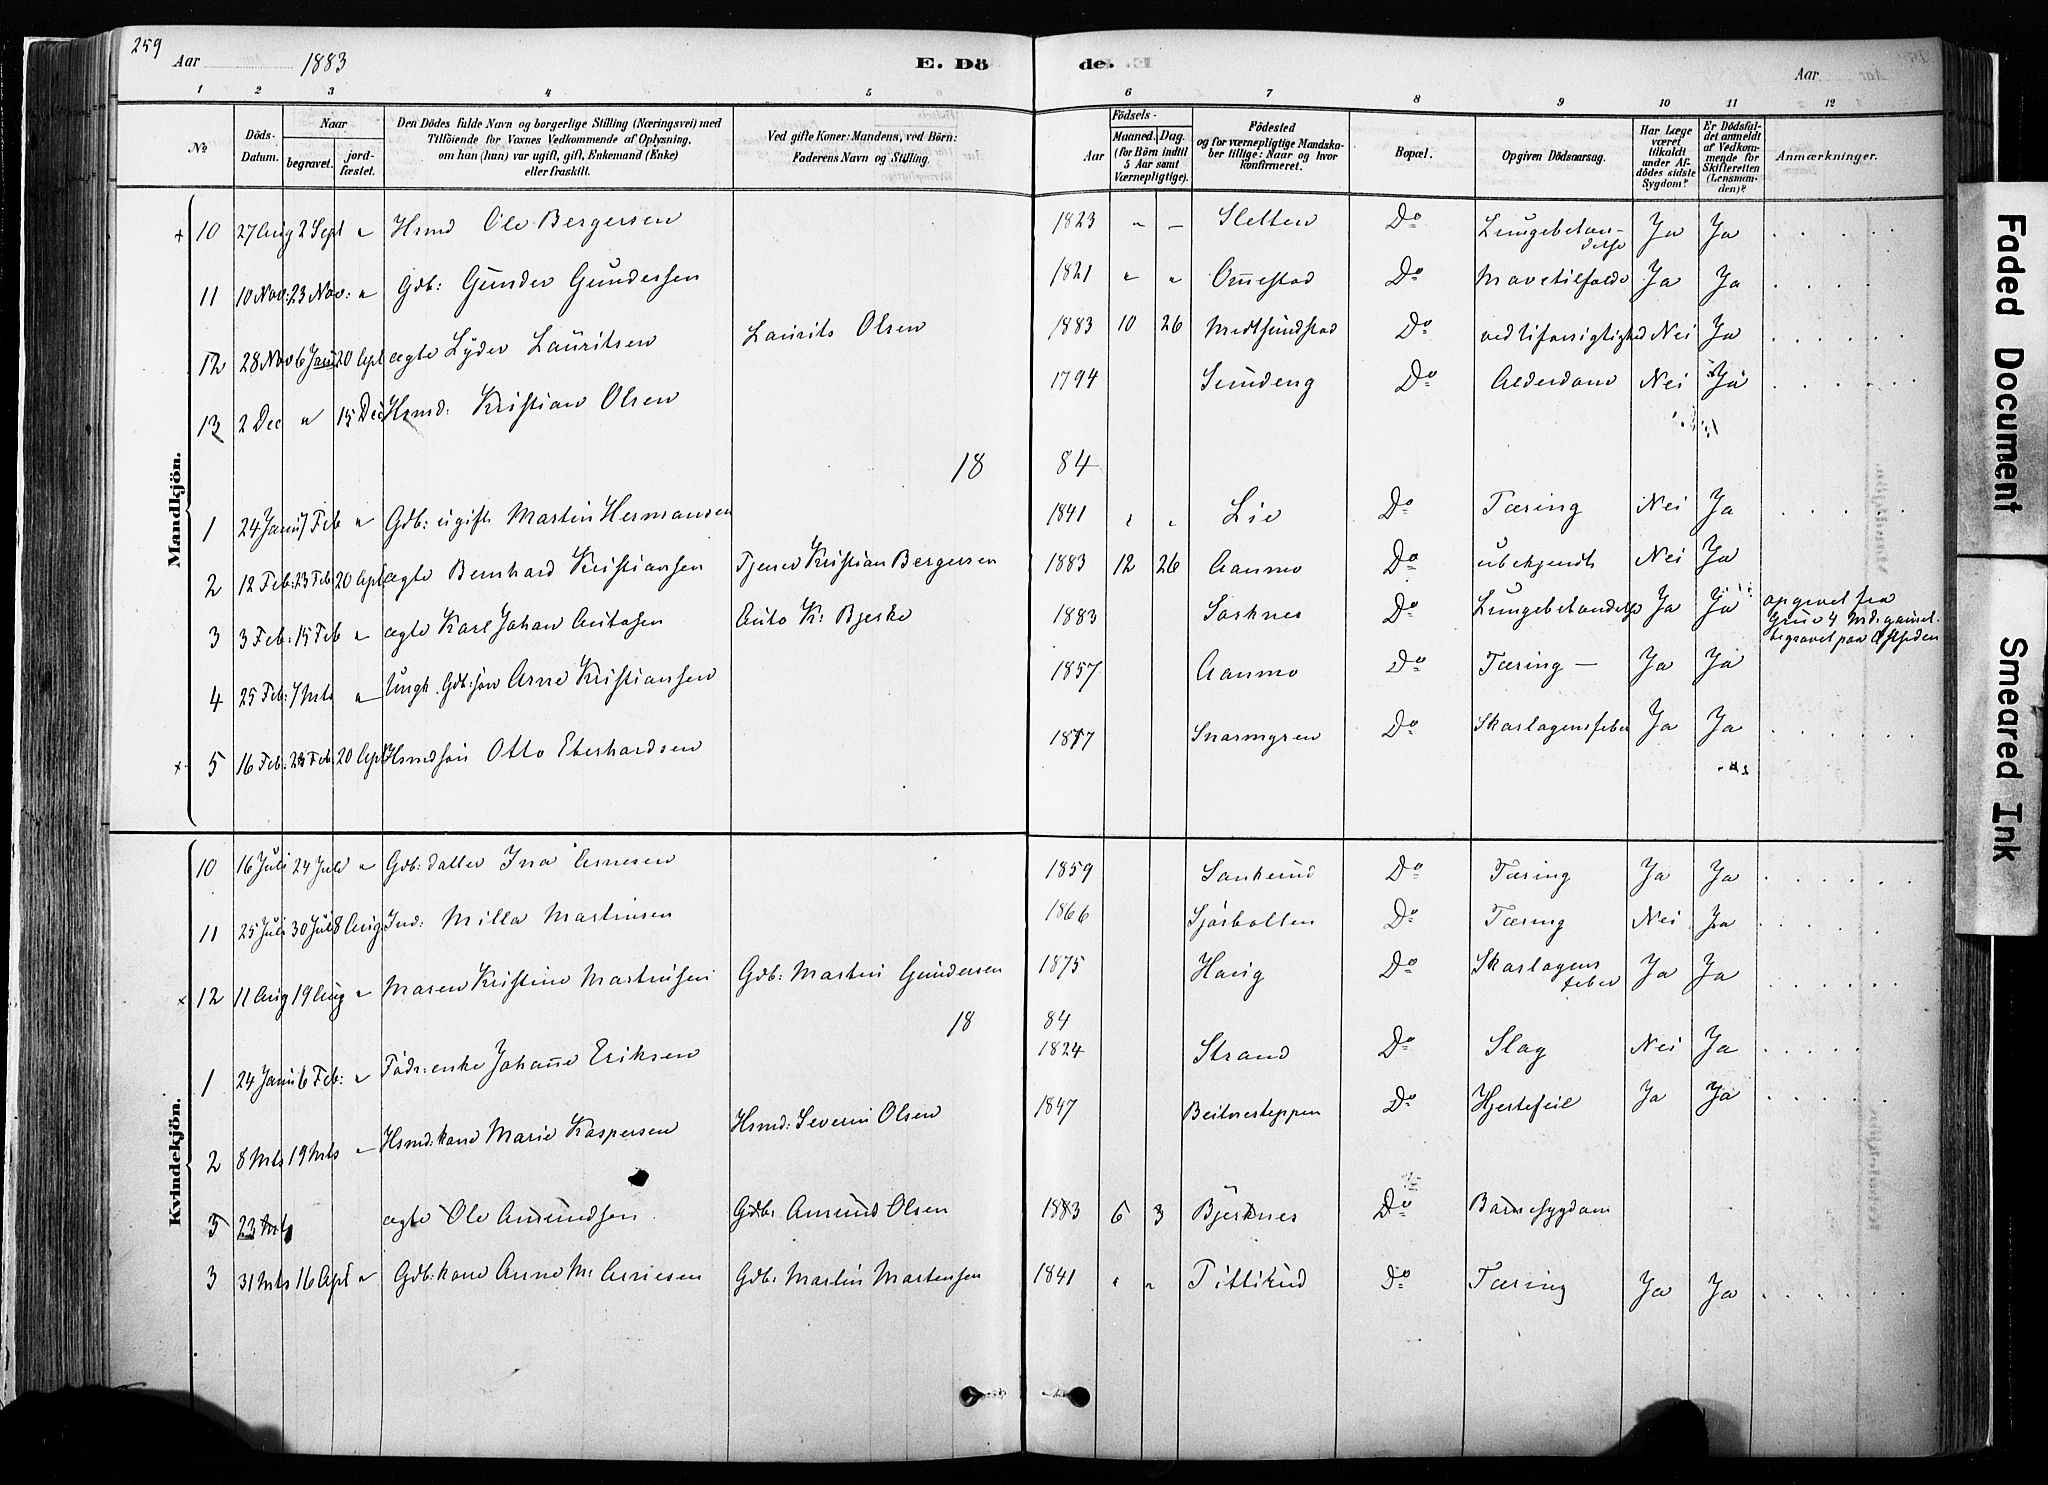 259
Aar 1883 E. Dö de. Aar
1 2 3 4 5 6 7 8 9 10 11 12
No
Döds-Datum.
Naar
begravet.
jord-fæstet.
Den Dödes fulde Navn og borgerlige Stilling (Næringsvei) med
Tilföiende for Voxnes Vedkommende af Oplysning,
om han (hun) var ugift, gift, Enkemand (Enke)
eller fraskilt.
Ved gifte Koner: Mandens, ved Börn:
Faderens Navn og Stilling.
Födsels-
Aar
Maaned. Dag.
(for Börn indtil
5 Aar samt
Værnepligtige).
Födested
og for værnepligtige Mandska-
ber tillige: Naar og hvor
konfirmeret.
Bopæl.
Opgiven Dödsaarsag.
Har Læge
været
tilkaldt
under Af-
dödes sidste
Sygdom?
Er Dödsfal-
det anmeldt
af Vedkom-
mende for
Skifteretten
(Lensman-
den)?
Anmærkninger.
Mandkjön.
+ 10 27 Aug 2 Sept " Hsmd Ole Bergersen 1823 " — Sletten Do Lungebetændelse Ja Ja
11 10 Nov: 23 Nov: " Gdb: Gunder Gundersen 1821 " " Omestad Do Mavetilfælde Ja Ja
12 28 Nov 6 Janu 20 Apl ægte Lyder Lauritsen Laurits Olsen 1883 10 26 Medtsundstad Do ved Uforsigtighed Nei Ja
13 2 Dec " 15 Dec Hsmd: Kristian Olsen 1794 Sundeng Do Alderdom Nei Ja
18 84
1 24 Janu 7 Feb " Gdb: ugift Martin Hermansen 1841 " " Lie Do Tæring Nei Ja
2 12 Feb: 23 Feb: 20 Apl ægte Bernhard Kristiansen Tjener Kristian Bergersen 1883 12 26 Aanmo Do ubekjendt Nei Ja
3 3 Feb: 15 Feb " ægte Karl Johan Autosen Auto K: Bjerke 1883 Sorknes Do Lungebetændelse Ja Ja opgivet fra
Grue 4 Mdr gammel
begravet paa Østsiden
4 25 Feb: 7 Mts " Ungk. Gdb: søn Arne Kristiansen 1857 Aanmo Do Tæring — Ja Ja
x 5 16 Feb: 23 Feb 20 Apl Hsmdsøn Otto Eberhardsen 1877 Snarmgren Do Skarlagensfeber Ja Ja
Kvindekjön.
10 16 Juli 24 Juli " Gdb: datter Ina Arnesen 1859 Sankerud Do Tæring Ja Ja
11 25 Juli 30 Juli 8 Aug Ind: Milla Martinsen 1866 Sjørbotten Do Tæring Nei Ja
x 12 11 Aug 19 Aug " Maren Kristine Martinsen Gdb: Martin Gundersen 1875 Haug Do Skarlagens feber Ja Ja
18 84
1 24 Janu 6 Feb: " Fødr: enke Johanne Eriksen 1824 Strand Do Slag Nei Ja
2 8 Mts 19 Mts " Hsmd: kone Marie Kaspersen Hsmd: Severin Olsen 1847 Beitnesteppen Do Hjertefeil Ja Ja
5 23 Mts ægte Ole Amundsen Gdb: Amund Olsen 1883 6 3 Bjerknes Do Barnesygdom
3 31 Mts 16 Apl " Gdb: kone Anne M. Arnesen Gdb: Martin Martensen 1841 " " Tittirud Do Tæring Ja Ja
Faded Document
Smeared Ink